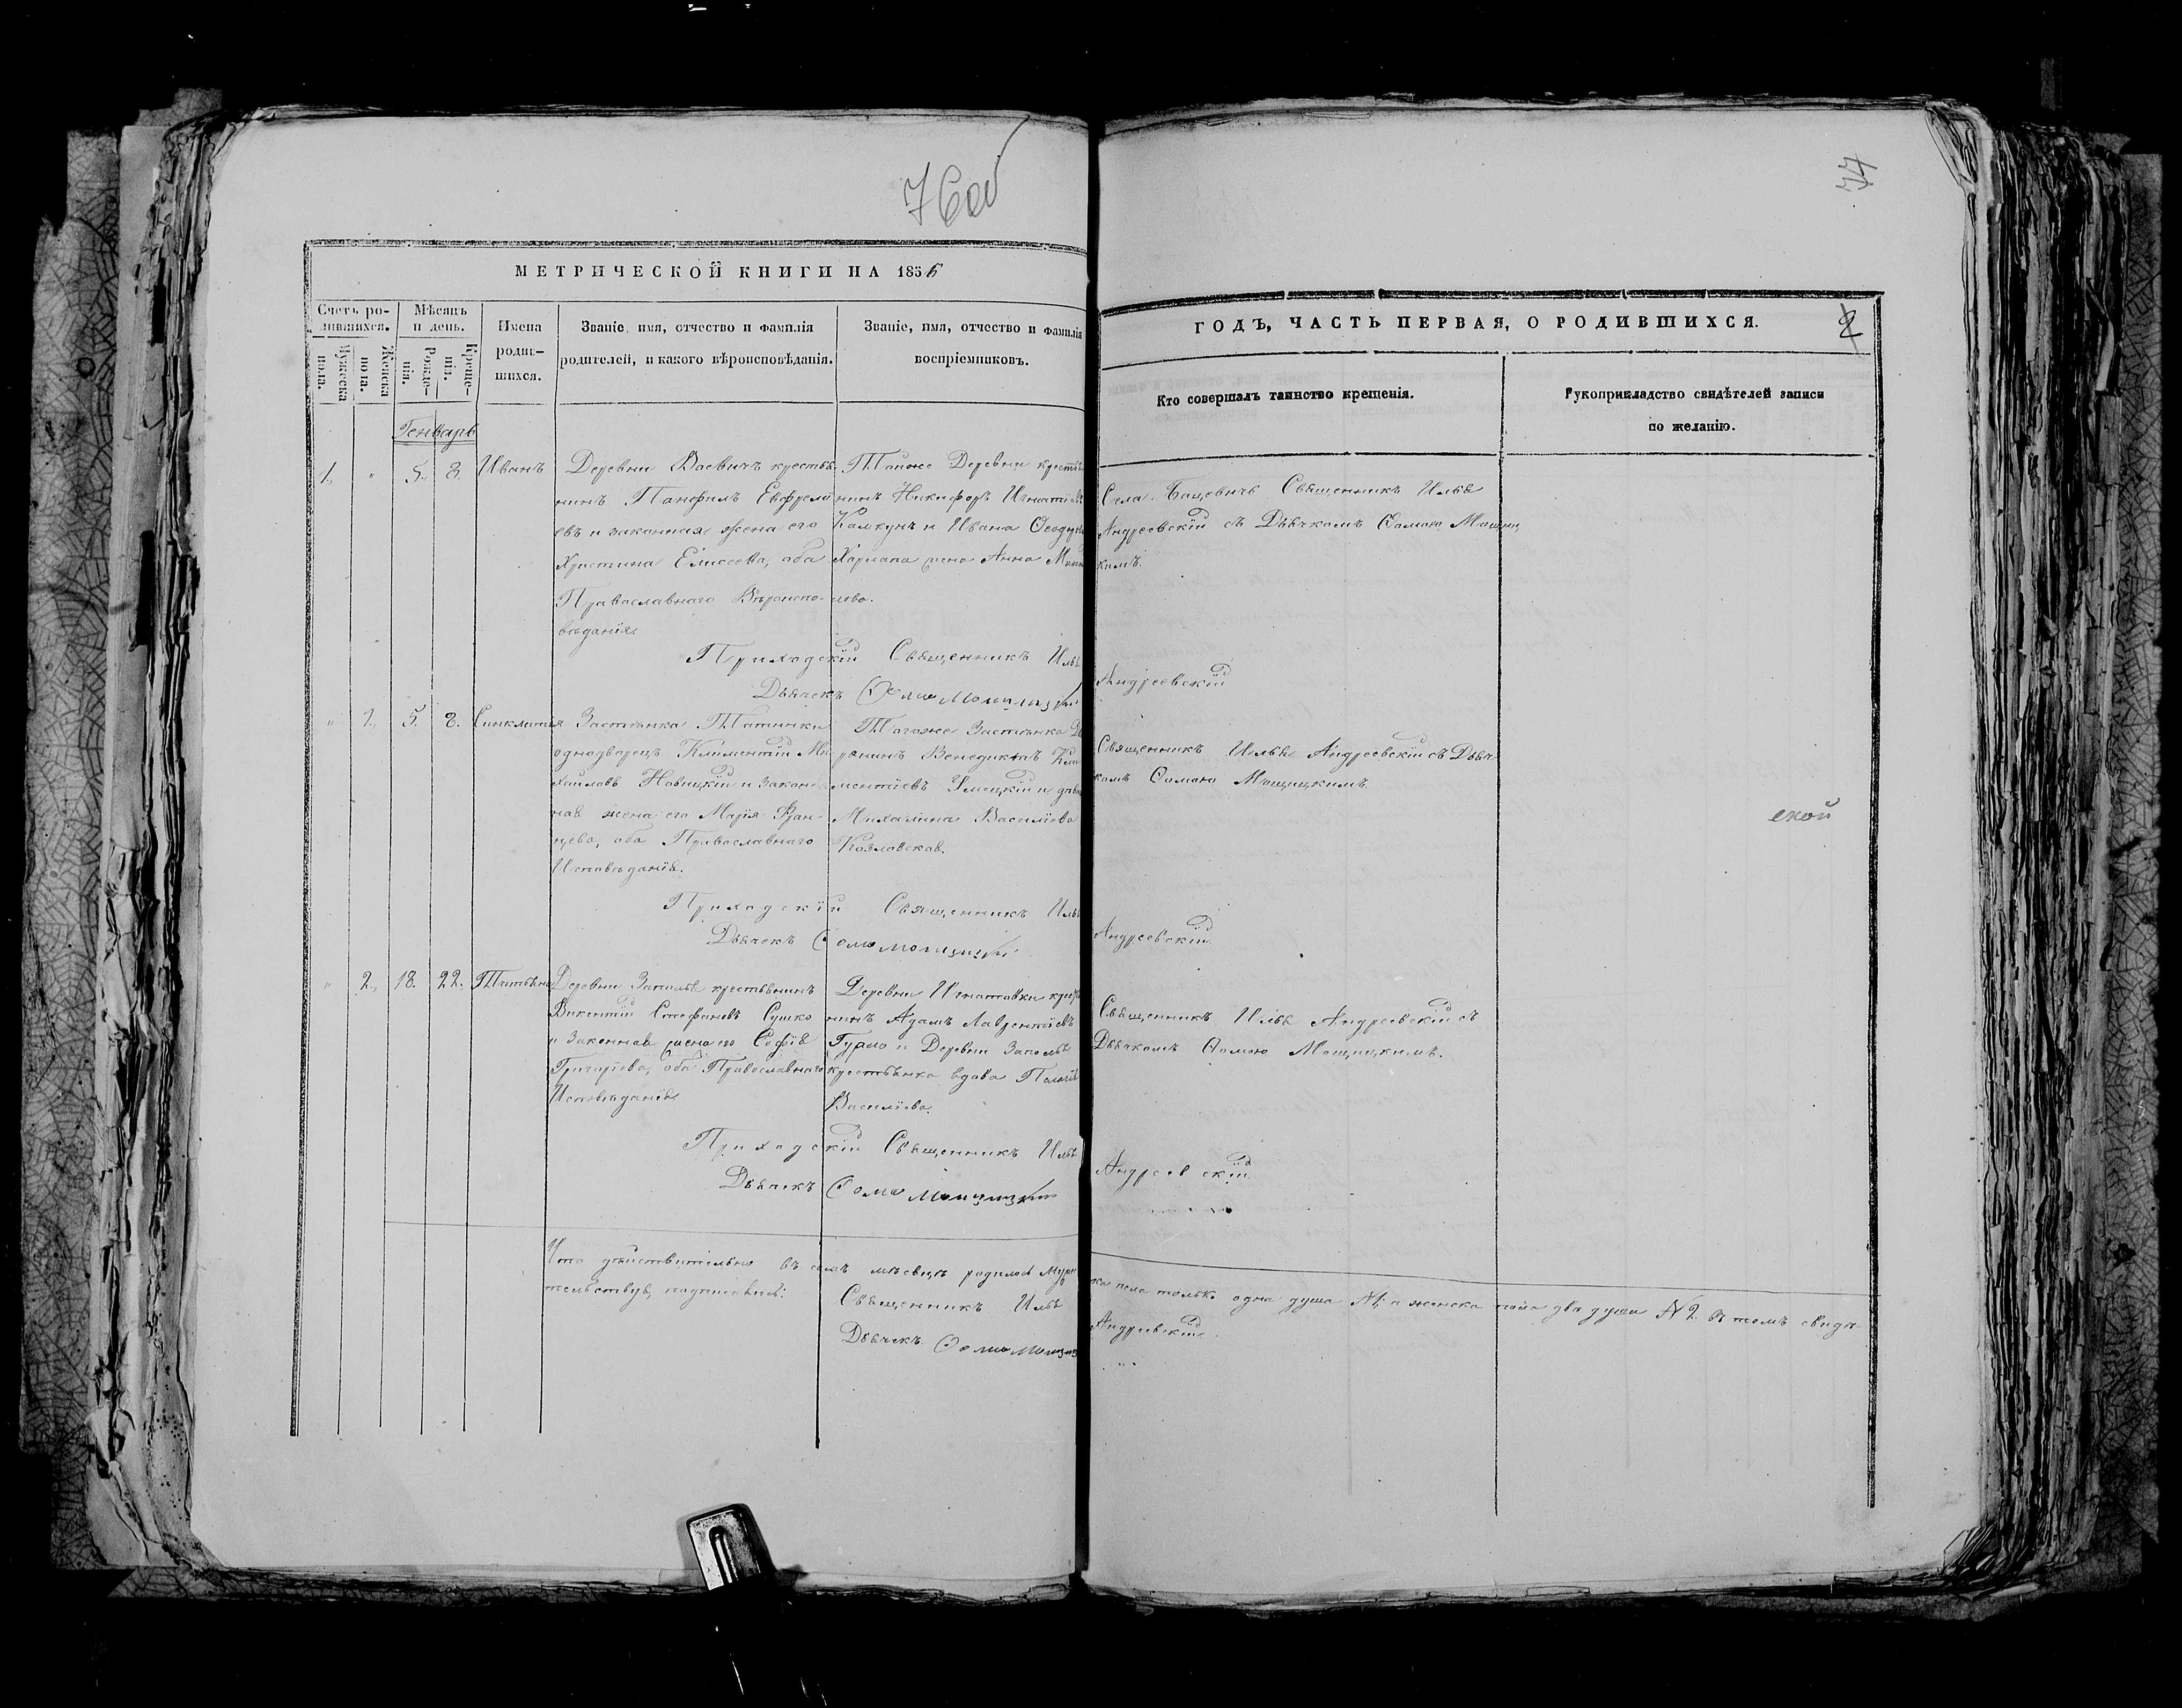 76 об
77
МЕТРИЧЕСКОЙ КНИГИ НА 1856
ГОДЪ, ЧАСТЬ ПЕРВАЯ, О РОДИВШИХСЯ.
2
Счетъ родившихся.
Мужеска пола.
Женска пола.
Мѣсяцъ и день.
Рожденія.
Крещенія.
Имена родившихся.
Званіе, имя, отчество и фамилія
родителей, и какого вѣроисповѣданія.
Званіе, имя, отчество и фамилія
воспріемниковъ.
Кто совершалъ таинство крещенія.
Рукоприкладство свидѣтелей записи
по желанію.
Генварь
1. " 5. 8. Иванъ
Деревни Воевичъ крестья-
нинъ Панфилъ Евфреми
евъ и законная жена его
Христина Елисеева, оба
Православнаго Вѣроиспо-
вѣданія.
Тойже Деревни крестья
нинъ Никифоръ Игнатіевъ
и Ивана
жена Анна
Села Священникъ Илья
Андреевскій съ Дьячкомъ Ѳомою Мощиц
кимъ.
Приходскій Священникъ Илья Андреевскій
Дьячекъ Ѳома Мощицкій
" 1. 5. 8. Синклитія
Застѣнка Татинки
однодворецъ Климентій Ми
хайловъ Новицкій и закон-
ная жена его Марія Фран-
цева, оба Православнаго
Исповѣданія.
Тогоже Застѣнка Дво
рянинъ Венедиктъ Кли
ментіевъ и
Михалина Василіева
Козловская.
Священникъ Илья Андреевскій съ Дьяч-
комъ Ѳомою Мощицкимъ.
ской
Приходскій Священникъ Илья Андреевскій
Дьячекъ Ѳома Мощицкій
" 2. 18. 22. Татьяна
Деревни Заполья крестьянинъ
Викентій Стефановъ Сушко
и Законная жена его Софія
Григоріева, оба Православнаго
Исповѣданія.
Деревни Игнатовки крестья
нинъ Адамъ Лаврентіевъ
Гурло и Деревни Заполья
крестьянка вдова Пелагія
Василіева.
Священникъ Илья Андреевскій съ
Дьячкомъ Ѳомою Мощицкимъ.
Приходскій Священникъ Илья Андреевскій
Дьячекъ Ѳома Мощицкій
Что дѣйствительно въ семъ мѣсяцѣ родилось Муже ска пола только одна душа №1 а женска пола двѣ души №2. въ томъ свидѣ-
тельствуя, подписался:
Священникъ Илья Андреевскій
Дьячекъ Ѳома Мощиц